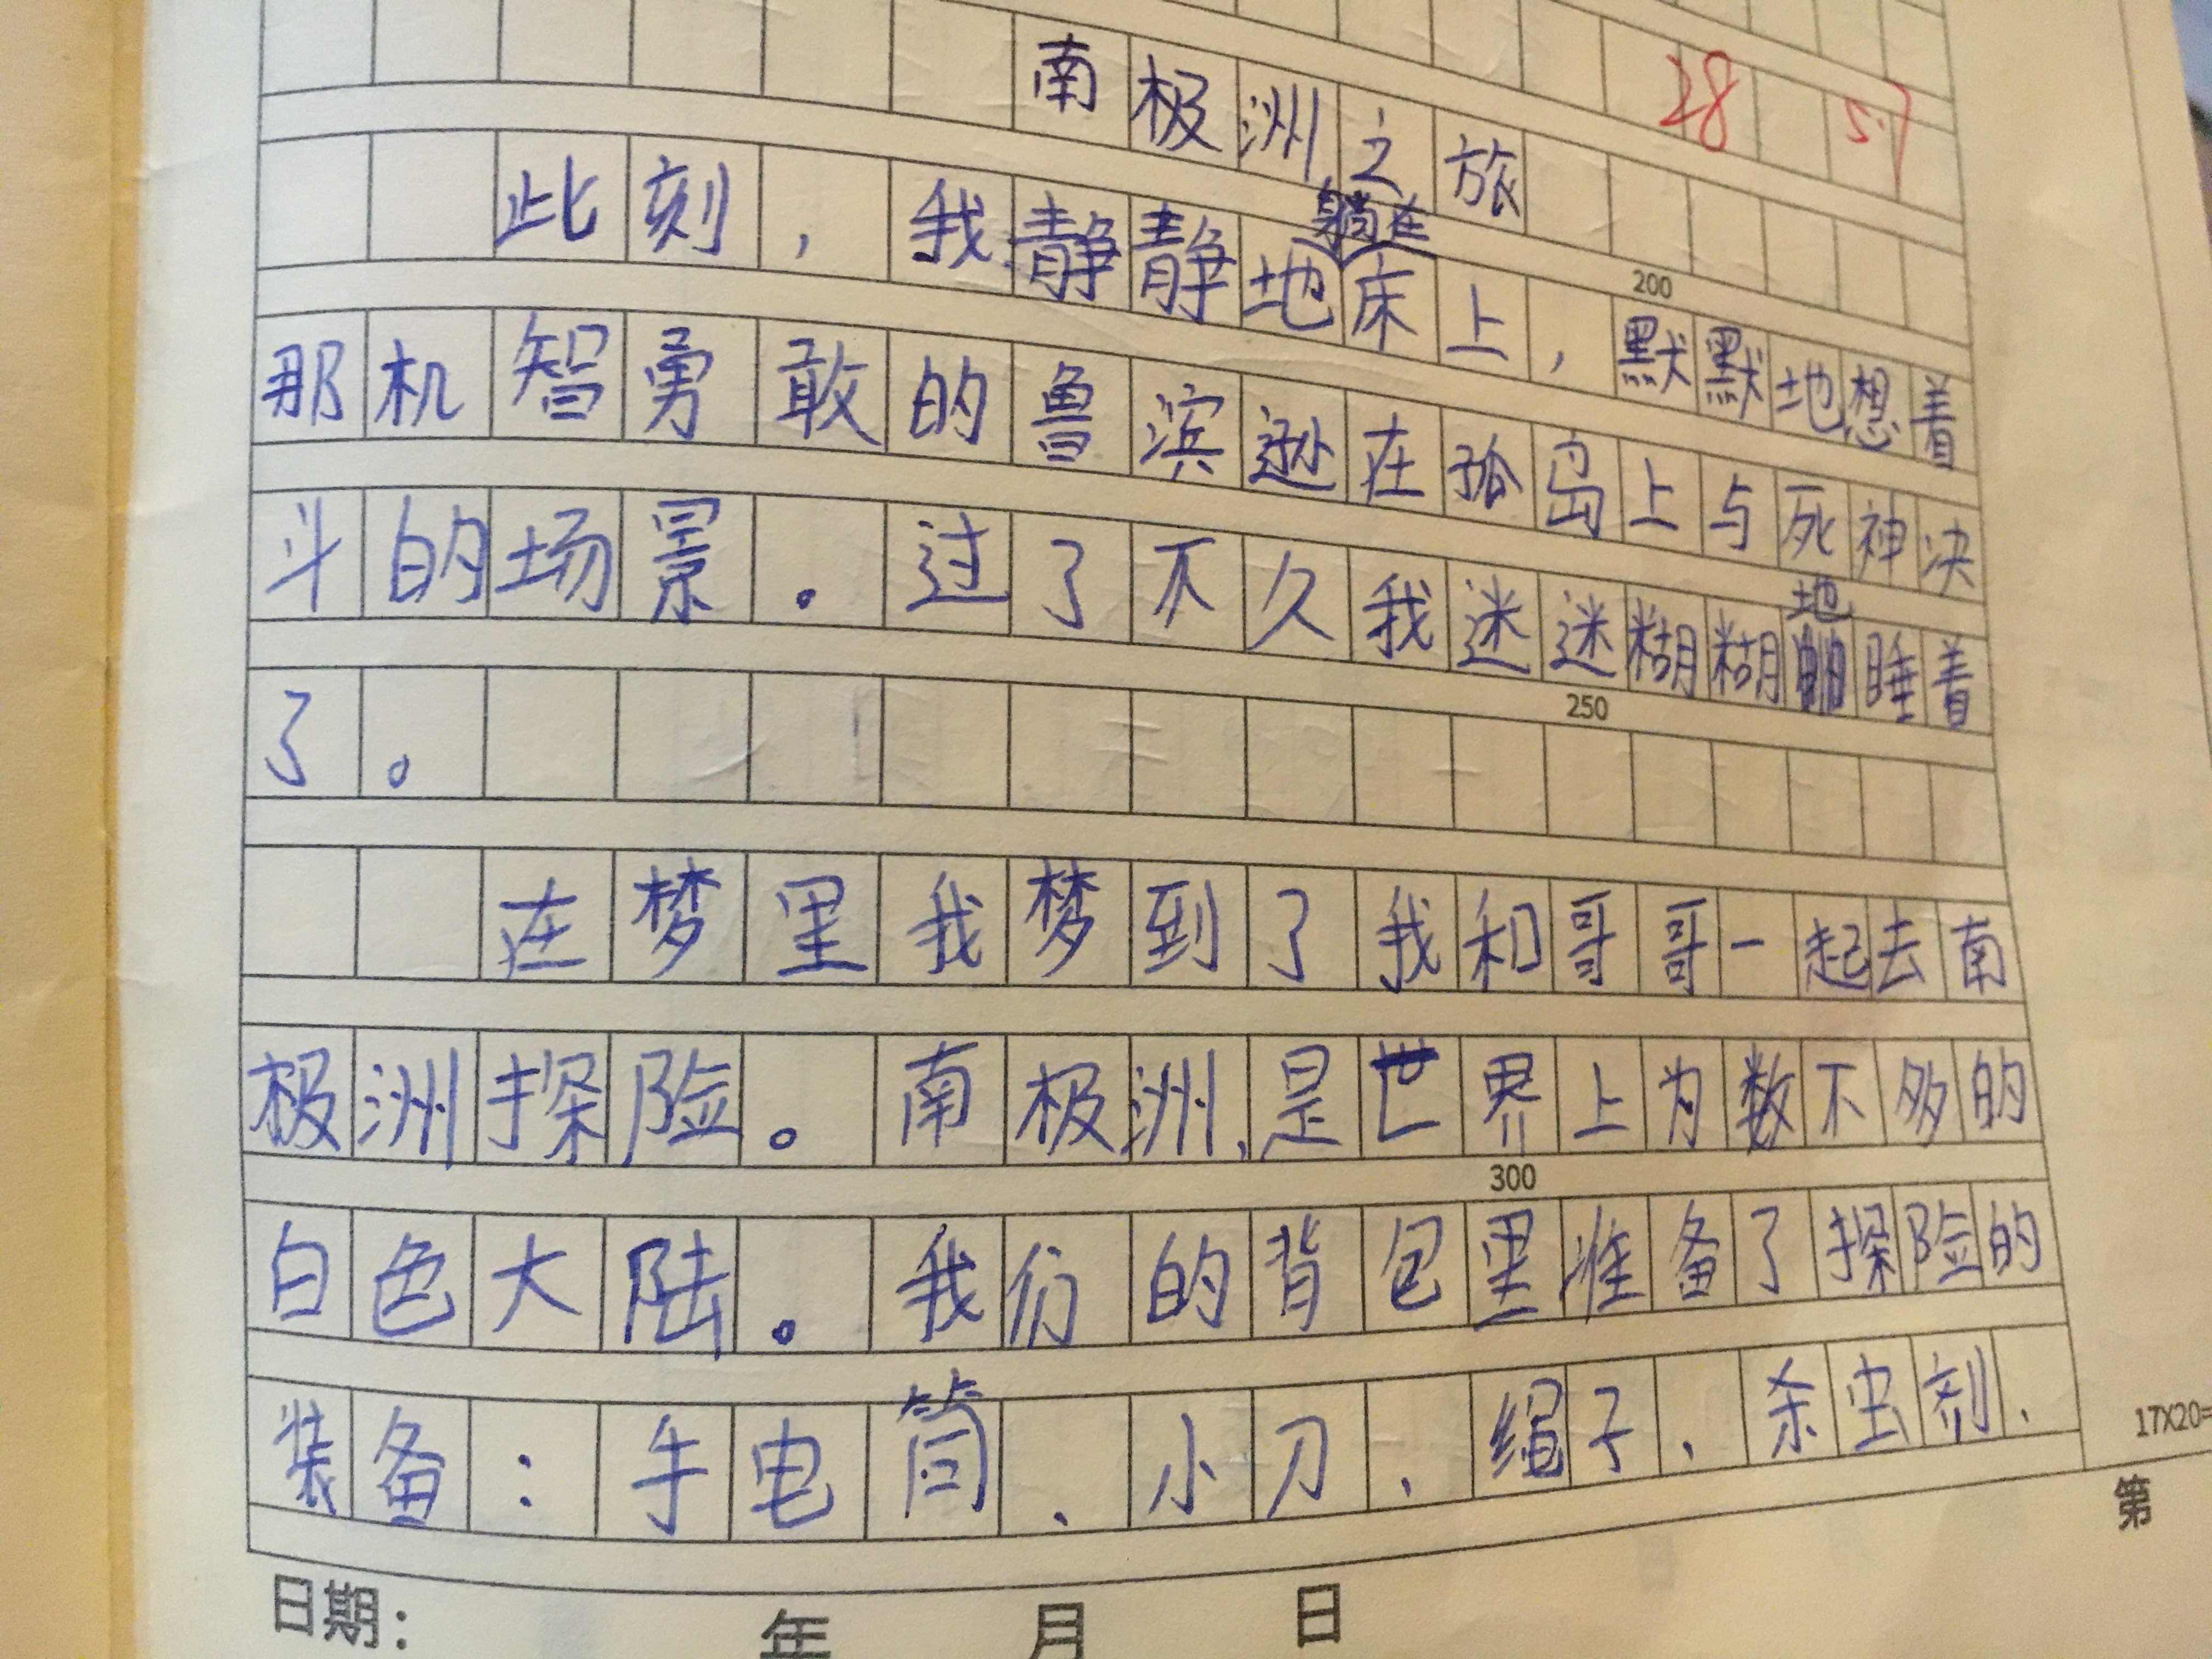 南极洲之旅 28 5.7
此刻，我静静地躺在床上，默默地想着
200
那机智勇敢的鲁滨逊在孤岛上与死神决
斗的场景。过了不久我迷迷糊糊地睡着
250
了。
在梦里我梦到了我和哥哥一起去南
极洲探险。南极洲，是世界上为数不多的
300
白色大陆。我们的背包里准备了探险的
装备：手电筒、小刀、绳子、杀虫剂、
17X20=
第
日期： 年 月 日